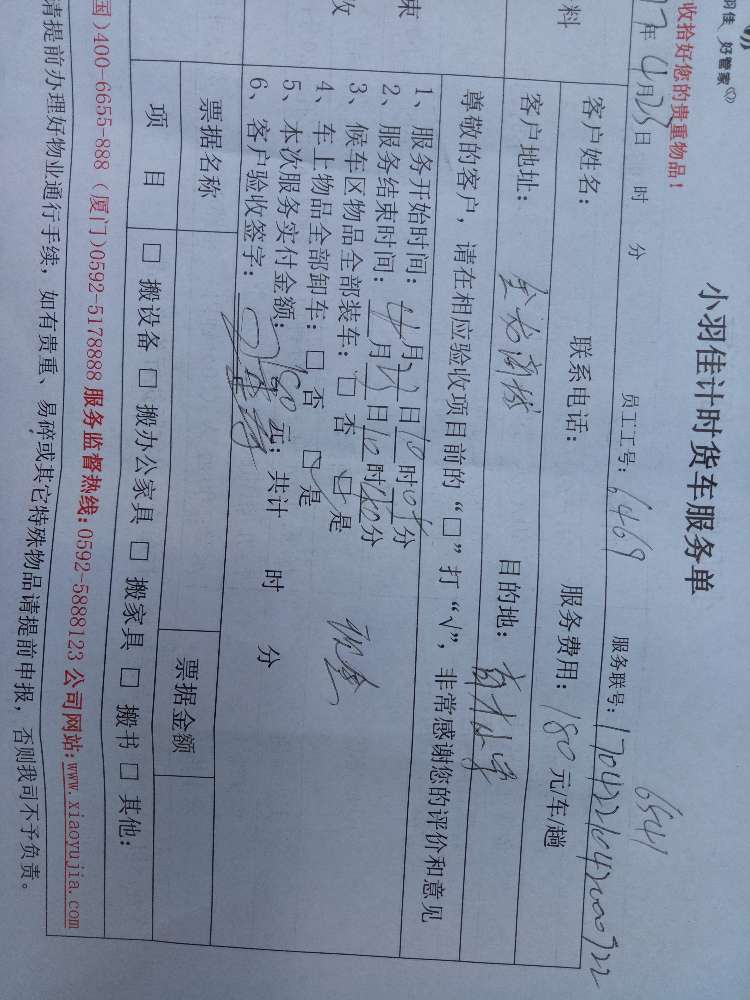 羽佳 好管家
收拾好您的贵重物品！
小羽佳计时货车服务单
6541
7年4月23日 时 分 员工工号：6469 服务联号：1704221042000922
客户姓名： 联系电话： 服务费用：180元/车/趟
客户地址： 目的地：
料
尊敬的客户，请在相应验收项目前的“□”打“√”，非常感谢您的评价和意见
1、服务开始时间：4月23日10时01分
2、服务结束时间：4月23日10时40分
3、候车区物品全部装车：□ 否 ☑ 是
4、车上物品全部卸车：□ 否 ☑ 是 现金
5、本次服务实付金额：180元；共计 时 分
6、客户验收签字：
束
票据名称 票据金额
项 目 □ 搬设备 □ 搬办公家具 □ 搬家具 □ 搬书 □ 其他：
国)400-6655-888（厦门)0592-5178888 服务监督热线:0592-5888123 公司网站:www.xiaoyujia.com
请提前办理好物业通行手续，如有贵重、易碎或其它特殊物品请提前申报，否则我司不予负责。